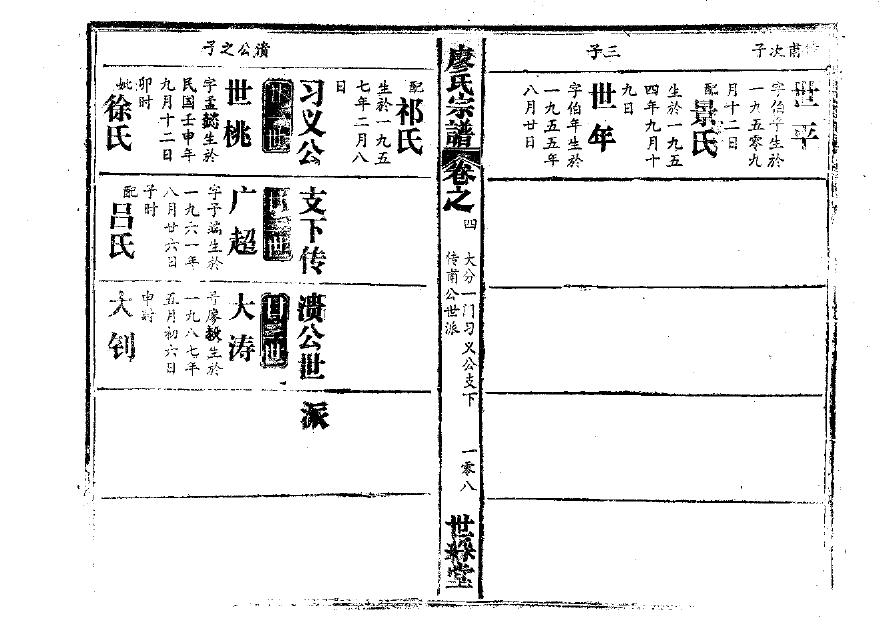 甫次子
世平
字伯子生於
一九五零九
月十二日
配
景氏
生於一九五
四年九月十
九日
三子
世年
字伯年生於
一九五五年
八月廿日
廖氏宗譜
卷之
四
大分一门习义公支下
传甫公世派
一零八
世綵堂
配
祁氏
生於一九五
七年二月八
日
习义公支下传
瀆公世派
瀆公之子
世桃
字孟懿生於
民国壬申年
九月十二日
卯时
妣
徐氏
世
广超
字子端生於
一九六一年
八月廿六日
子时
配
吕氏
廿三世
大涛
号廖毅生於
一九八七年
五月初六日
申时
大钊